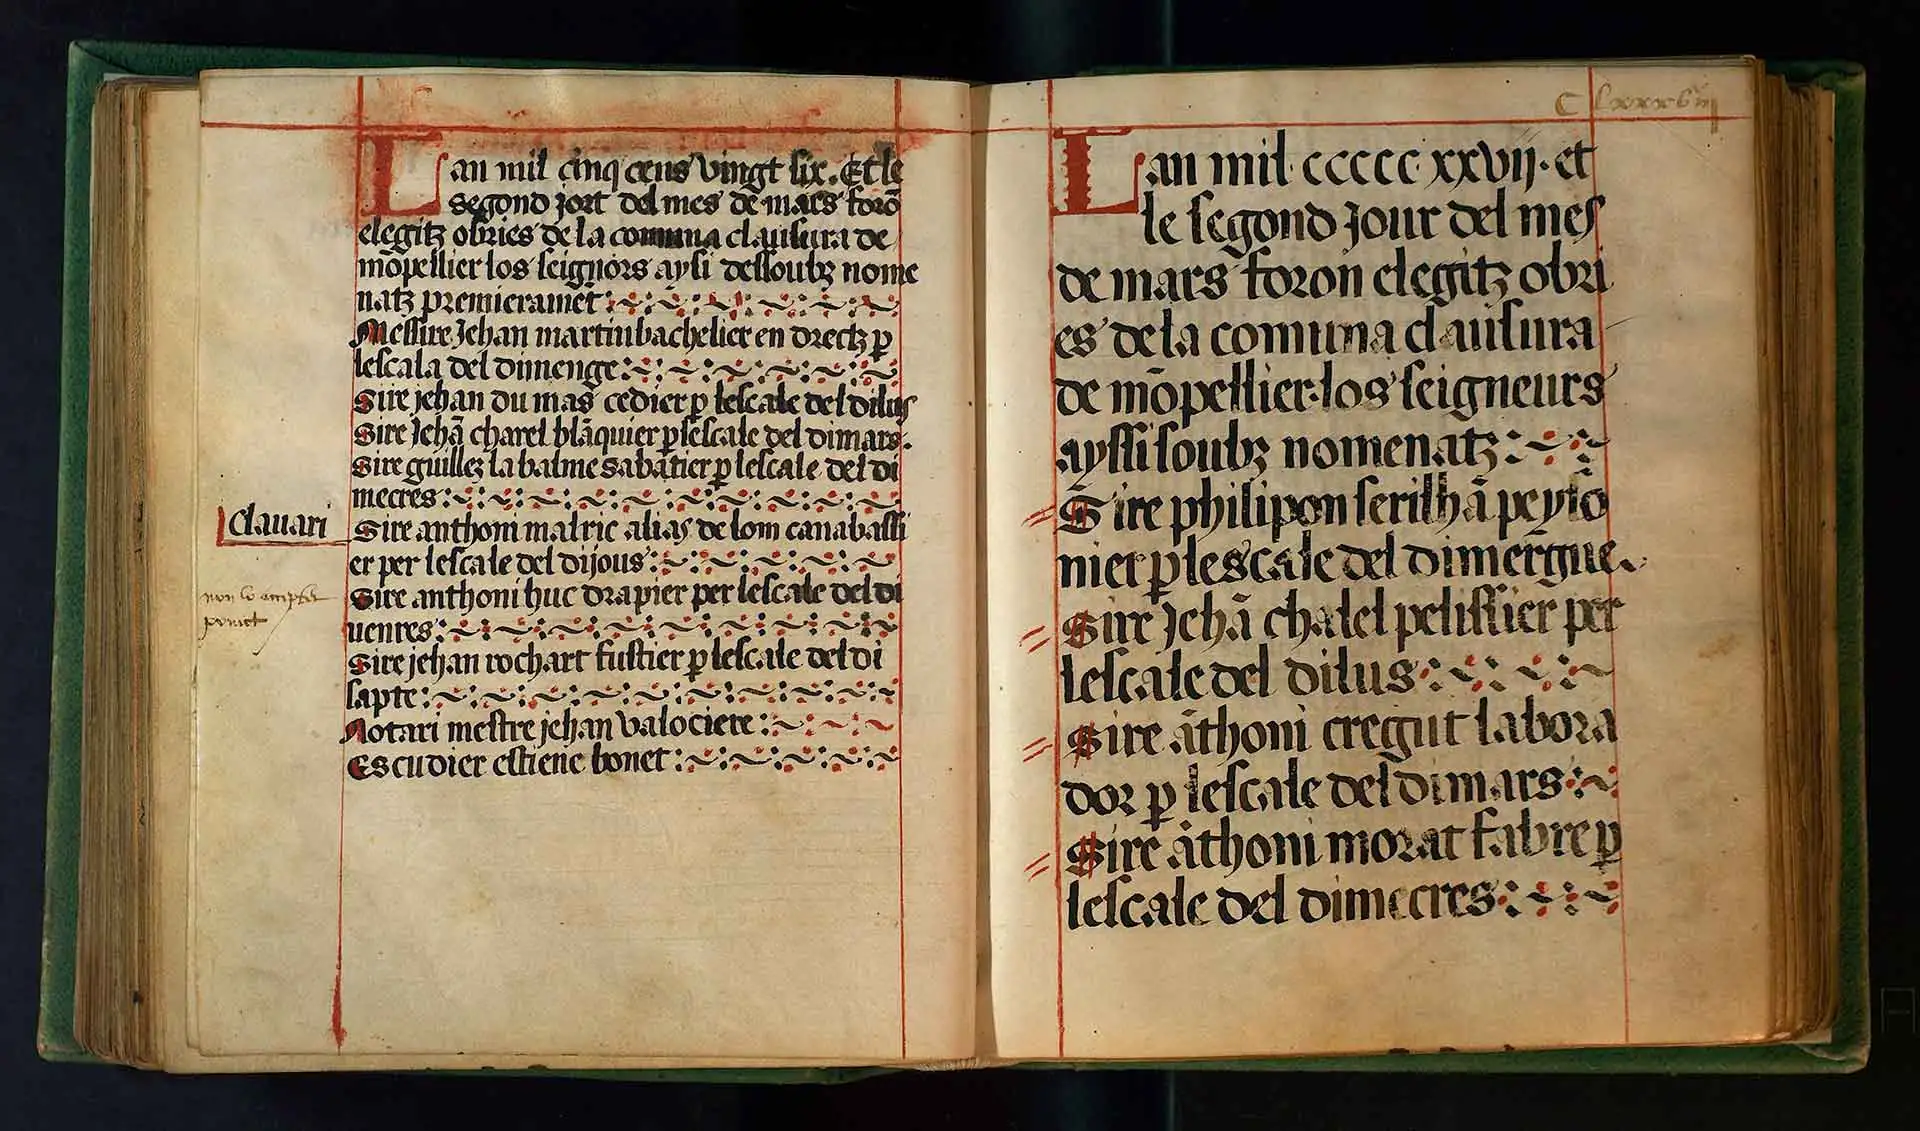 Lan mil cinq cens vingt six. Et le
segond jort del mes de mars forõ
elegitz obries de la comuna clausura de
mõpellier los seignors aysi dessoubz nome
natz premieramẽt:
Messire Jehan martin bachelier en drectz p
lescala del dimenge:
Sire jehan du mas cedier p lescale del dilus
Sire Jehã charel blãquier p lescale del dimars.
Sire guillez la balme sabatier p lescale del di
mecres:
Clauari
Sire anthoni matric alias de lom canabassi
er per lescale del dijous:
non
Sire anthoni huc drapier per lescale del di
uenres:
Sire jehan rochart fustier p lescale del di
sapte:
Notari mestre jehan valociere:
Escudier estiene bonet:
C lxxxvii
Lan mil ccccc xxvij. et
le segond jour del mes
de mars foron elegitz obri
es de la comuna clausura
de mõpellier los seigneurs
ayssi soubz nomenatz:
Sire philipon serilhã peyro
nier p lescale del dimergue.
Sire Jehã chatel pelissier per
lescale del dilus:
Sire ãthoni cregut labora
dor p lescale del dimars:
Sire ãthoni morat fabre p
lescale del dimecres: